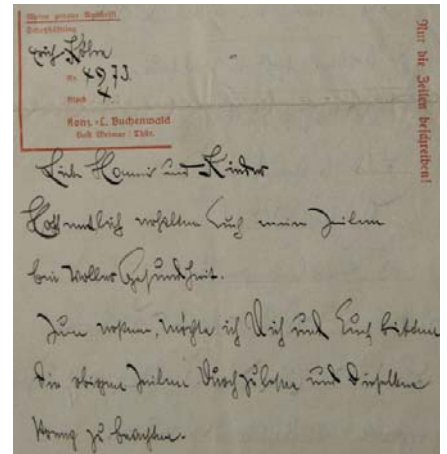 Meine genaue Anschrift
Schutzhäftling
Erich
Nr. 4973.
Block 4.
Konz.-L. Buchenwald
Post Weimar / Thür.
Nur die Zeilen beschreiben!
Liebe und Kinder
Hoffentlich erhalten Euch meine Zeilen
bei voller Gesundheit.
Zum ersten, möchte ich Dich und Euch bitten
die obigen Zeilen Durchzulesen und dieselben
streng zu beachten.